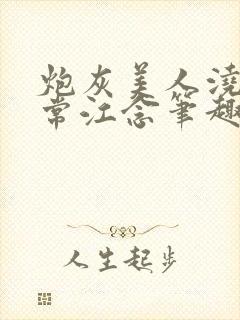 炮灰美人浇
常江念笔趣
人生起步